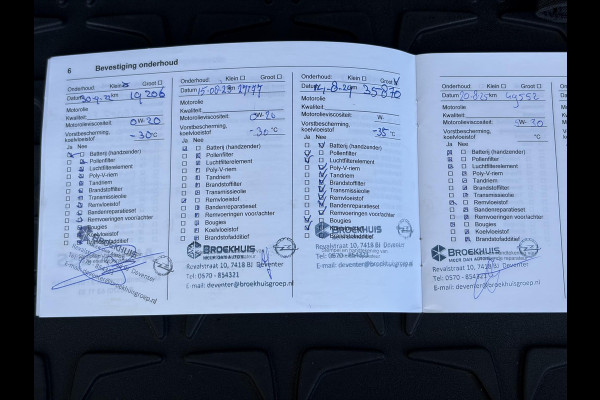 6 Bevestiging onderhoud
Onderhoud: Klein Groot
Datum km 19206
Motorolie
Kwaliteit
Motorolieviscositeit: 0W-20
Vorstbescherming,
koelvloeistof -30°C
Ja Nee
Batterij (handzender)
Pollenfilter
Luchtfilterelement
Poly-V-riem
Tandriem
Brandstoffilter
Transmissieolie
Remvloeistof
Bandenreparatieset
Remvoeringen voor/achter
Bougies
Koelvloeistof
Brandstofadditief
Deventer
Onderhoud: Klein Groot
Datum 15-08-23 km 27777
Motorolie
Kwaliteit
Motorolieviscositeit: 0W-20
Vorstbescherming,
koelvloeistof -30°C
Ja Nee
Batterij (handzender)
Pollenfilter
Luchtfilterelement
Poly-V-riem
Tandriem
Brandstoffilter
Transmissieolie
Remvloeistof
Bandenreparatieset
Remvoeringen voor/achter
Bougies
Koelvloeistof
Brandstofadditief
BROEKHUIS
MEER DAN AUTO'S
Revalstraat 10, 7418 BJ Deventer
Tel: 0570 - 854321
E-mail: deventer@broekhuisgroep.nl
Onderhoud: Klein Groot
Datum 14-8-24 35870
Motorolie
Kwaliteit
Motorolieviscositeit: W-
Vorstbescherming,
koelvloeistof -35°C
Ja Nee
Batterij (handzender)
Pollenfilter
Luchtfilterelement
Poly-V-riem
Tandriem
Brandstoffilter
Transmissieolie
Remvloeistof
Bandenreparatieset
Remvoeringen voor/achter
Bougies
BROEKHUIS
Revalstraat 10, 7418 BJ Deventer
Tel: 0570 - 854321
E-mail: deventer@broekhuisgroep.nl
Onderhoud: Klein Groot
Datum 20-8-25 km 49552
Motorolie
Kwaliteit
Motorolieviscositeit: W- 30
Vorstbescherming,
koelvloeistof °C
Ja Nee
Batterij (handzender)
Pollenfilter
Luchtfilterelement
Poly-V-riem
Tandriem
Brandstoffilter
Transmissieolie
Remvloeistof
Bandenreparatieset
Remvoeringen voor/achter
Bougies
Koelvloeistof
Brandstofadditief
BROEKHUIS
MEER DAN AUTO'S
Revalstraat 10, 7418 BJ Deventer
Tel: 0570 - 854321
E-mail: deventer@broekhuisgroep.nl